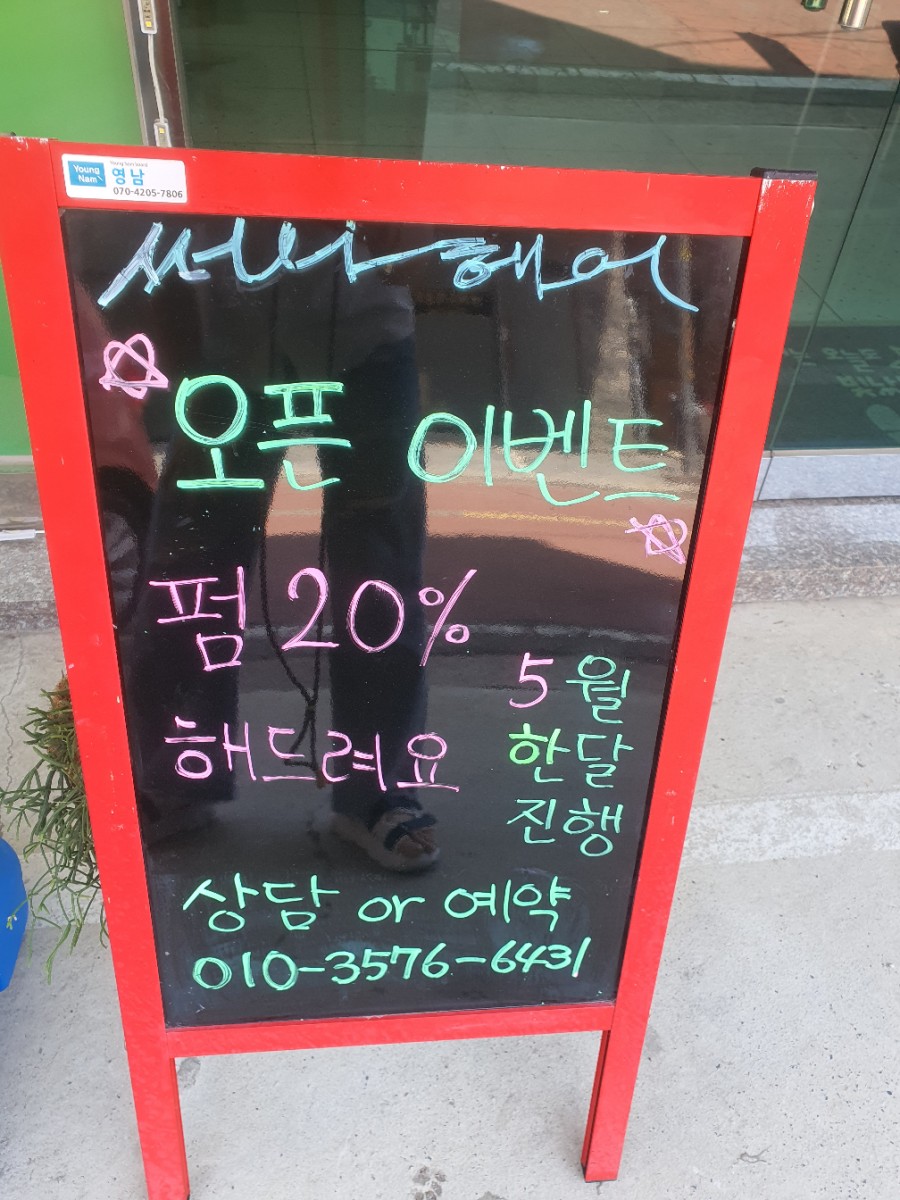 Young Nam board
Young Nam
영남
070-4205-7806
써니헤어
오픈 이벤트
펌 20%
해드려요
5월
한달
진행
상담 or 예약
010-3576-6431